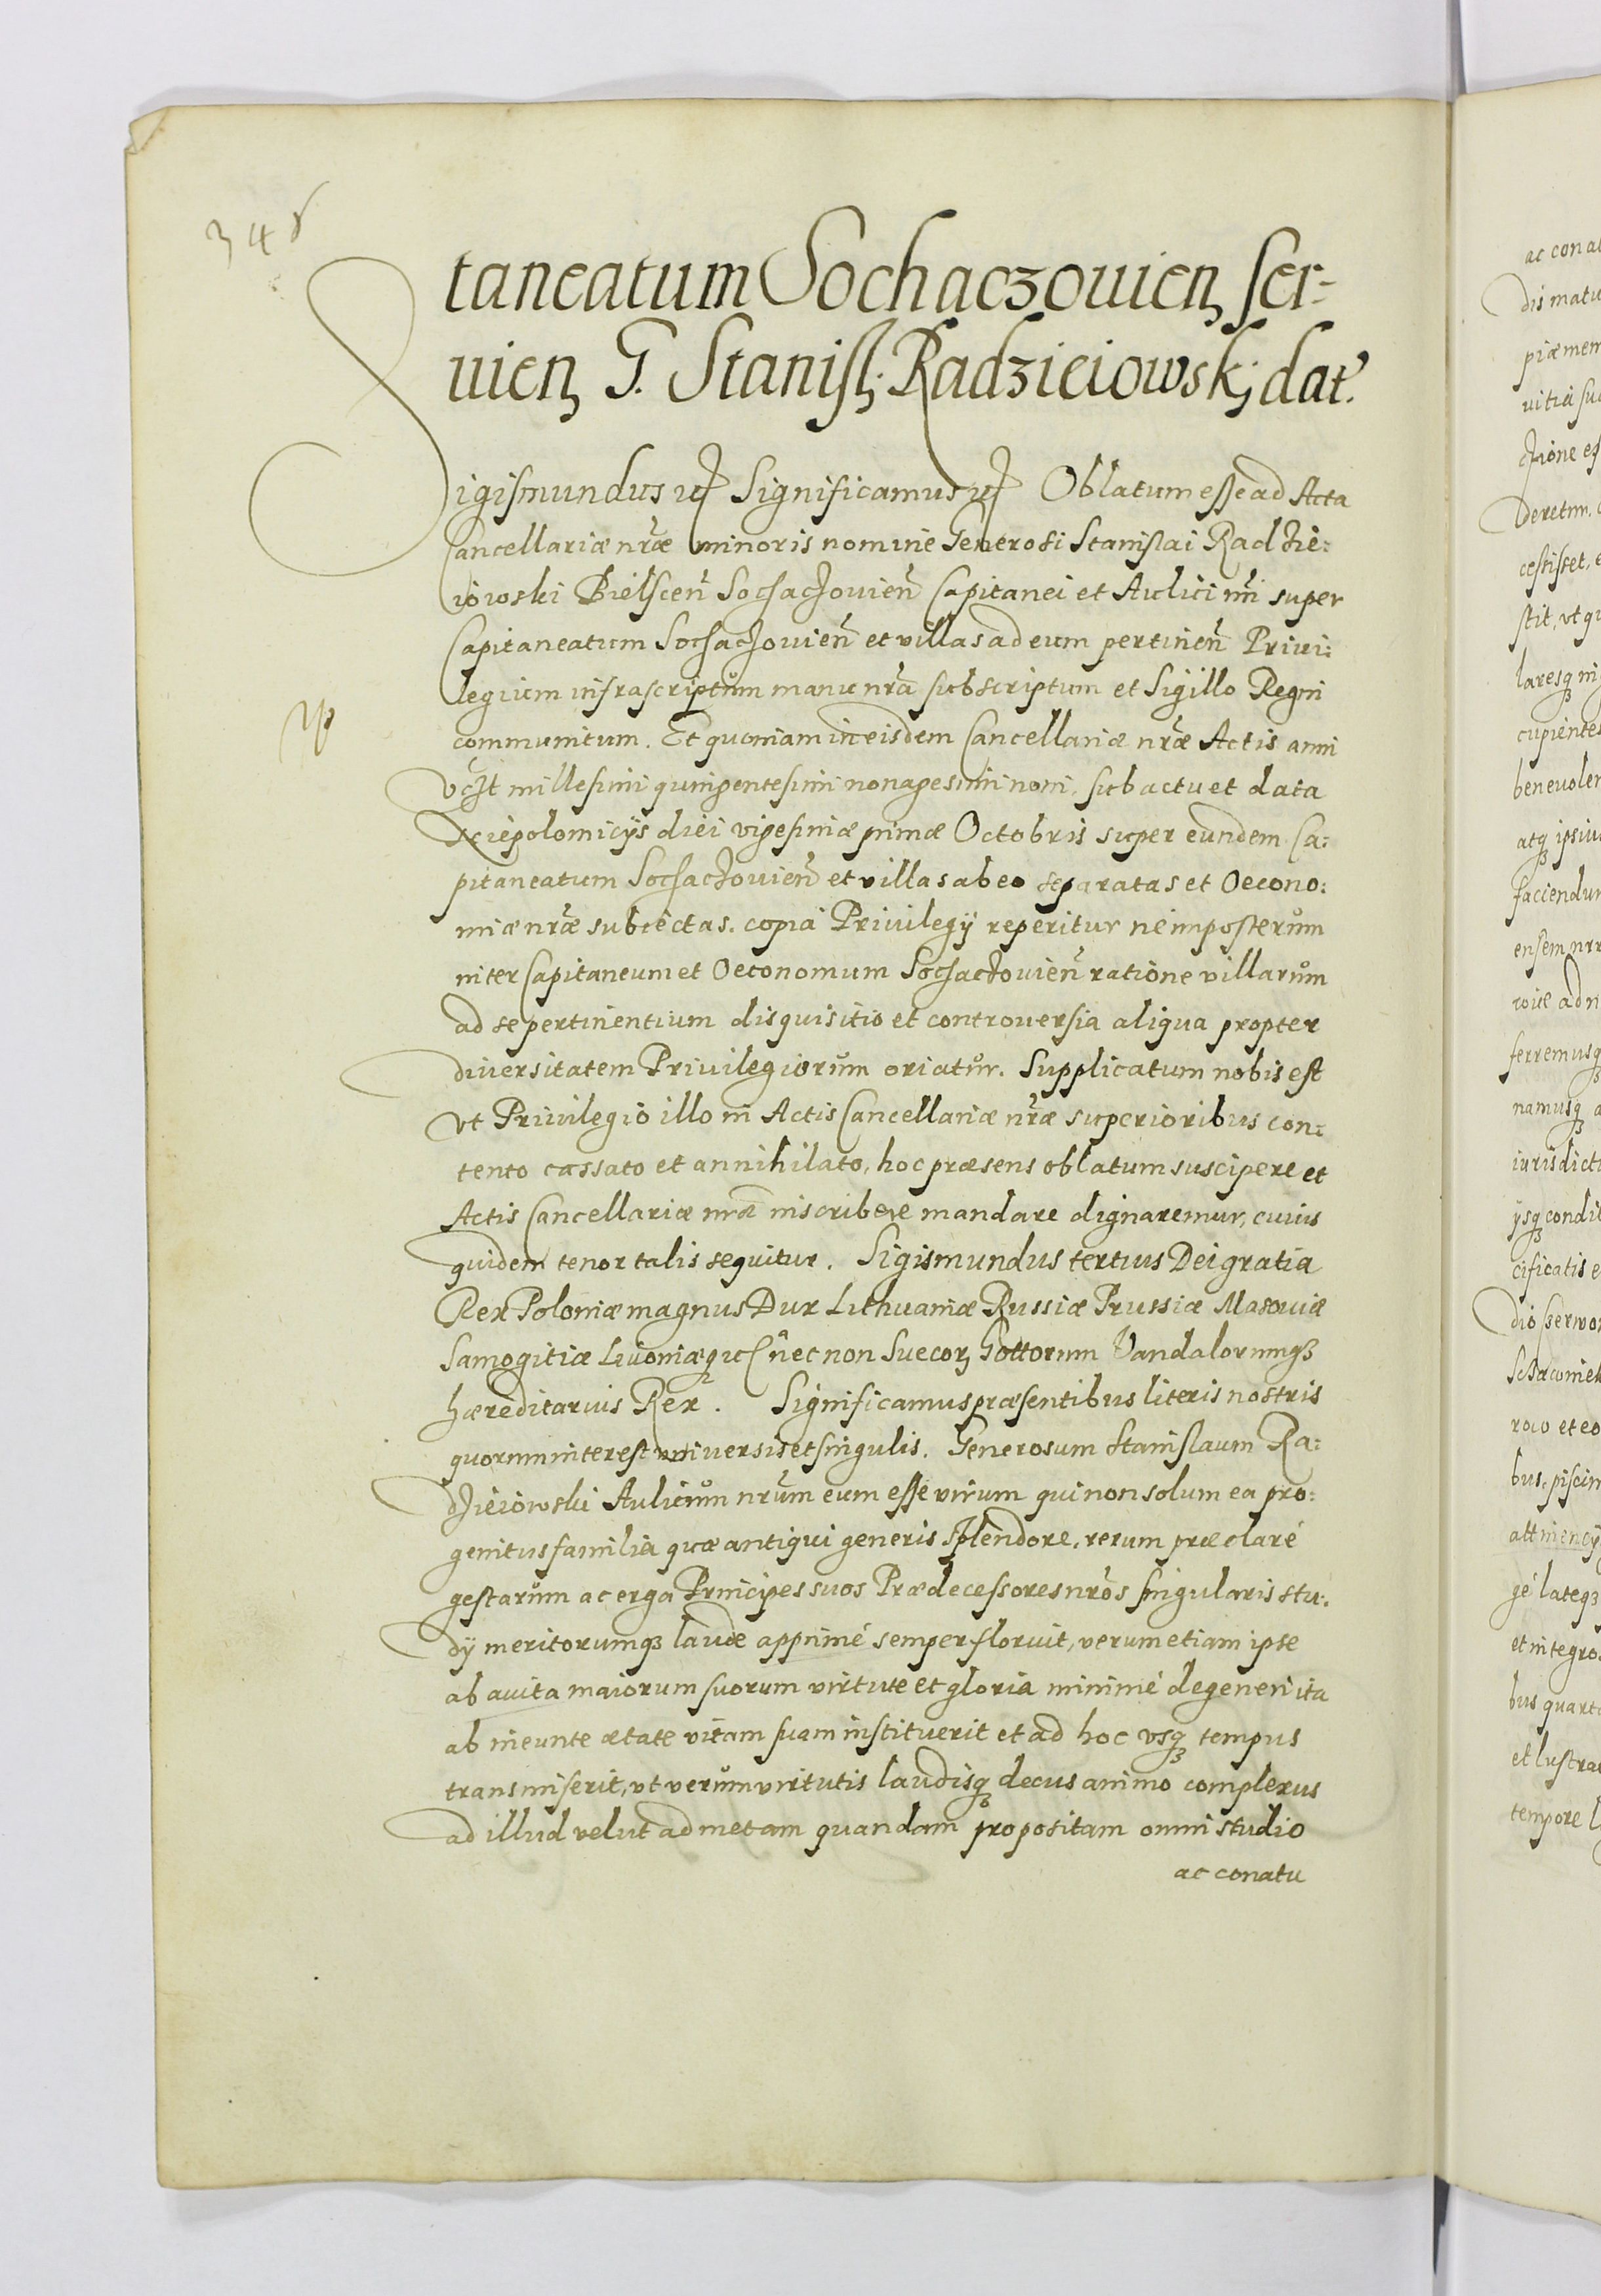 348
taneatum Sochaczouien ser-
uien G. Stanisl. Radzieiowskj dat.
Sigismundus etc Significamus etc Oblatum esse ad Acta
Cancellariæ nræ minoris nomine Generosi Stanislai Radzie:
iowski Bielscen Sochaczouien Capitanei et Aulici nri super
Capitaneatum Sochaczouien et villas ad eum pertinen Priui:
legium infrascriptum manu nra subscriptum et Sigillo Regni
communitum. Et quoniam in eisdem Cancellariæ nræ Actis anni
millesimi quingentesimi nonagesimi noni, sub actu et data
Niepolomicijs diei vigesimæ primæ Octobris super eundem Ca:
pitaneatum Sochaczouien et villas ab eo separatas et Oecono:
miæ nræ subiectas. copia Priuilegij reperitur ne imposterum
inter Capitaneum et Oeconomum Sochaczouien ratione villarum
ad se pertinentium disquisitio et controuersia aliqua propter
diuersitatem Priuilegiorum oriatur. Supplicatum nobis est
vt Priuilegio illo in Actis Cancellariæ nræ superioribus con:
tento cassato et annihilato, hoc præsens oblatum suscipere et
Actis Cancellariæ nræ inscribere mandare dignaremur, cuius
quidem tenor talis sequitur. Sigismundus tertius Dei gratia
Rex Poloniæ magnus Dux Lithuaniæ Russiæ Prussiæ Masouiæ
Samogitiæ Liuoniæq; etc nec non Suecor Gottorum Vandalorumq;
hæreditarius Rex. Significamus præsentibus literis nostris
quorum interest vniuersis et singulis. Generosum Stanislaum Ra:
dzieiowski Aulicum nrum eum esse virum qui non solum ea pro:
genitus familia quæ antiqui generis splendore, rerum præclaré
gestarum ac erga Principes suos Prædecessores nros singularis stu:
dij meritorumq; laude apprimé semper floruit, verum etiam ipse
ab auita maiorum suorum virtute et gloria minimé degeneri ita
ab ineunte ætate vitam suam instituerit et ad hoc vsq; tempus
transmiserit, vt verum virtutis laudisq; decus animo complexus
ad illud velut ad metam quandam propositam omni studio
ac conatu